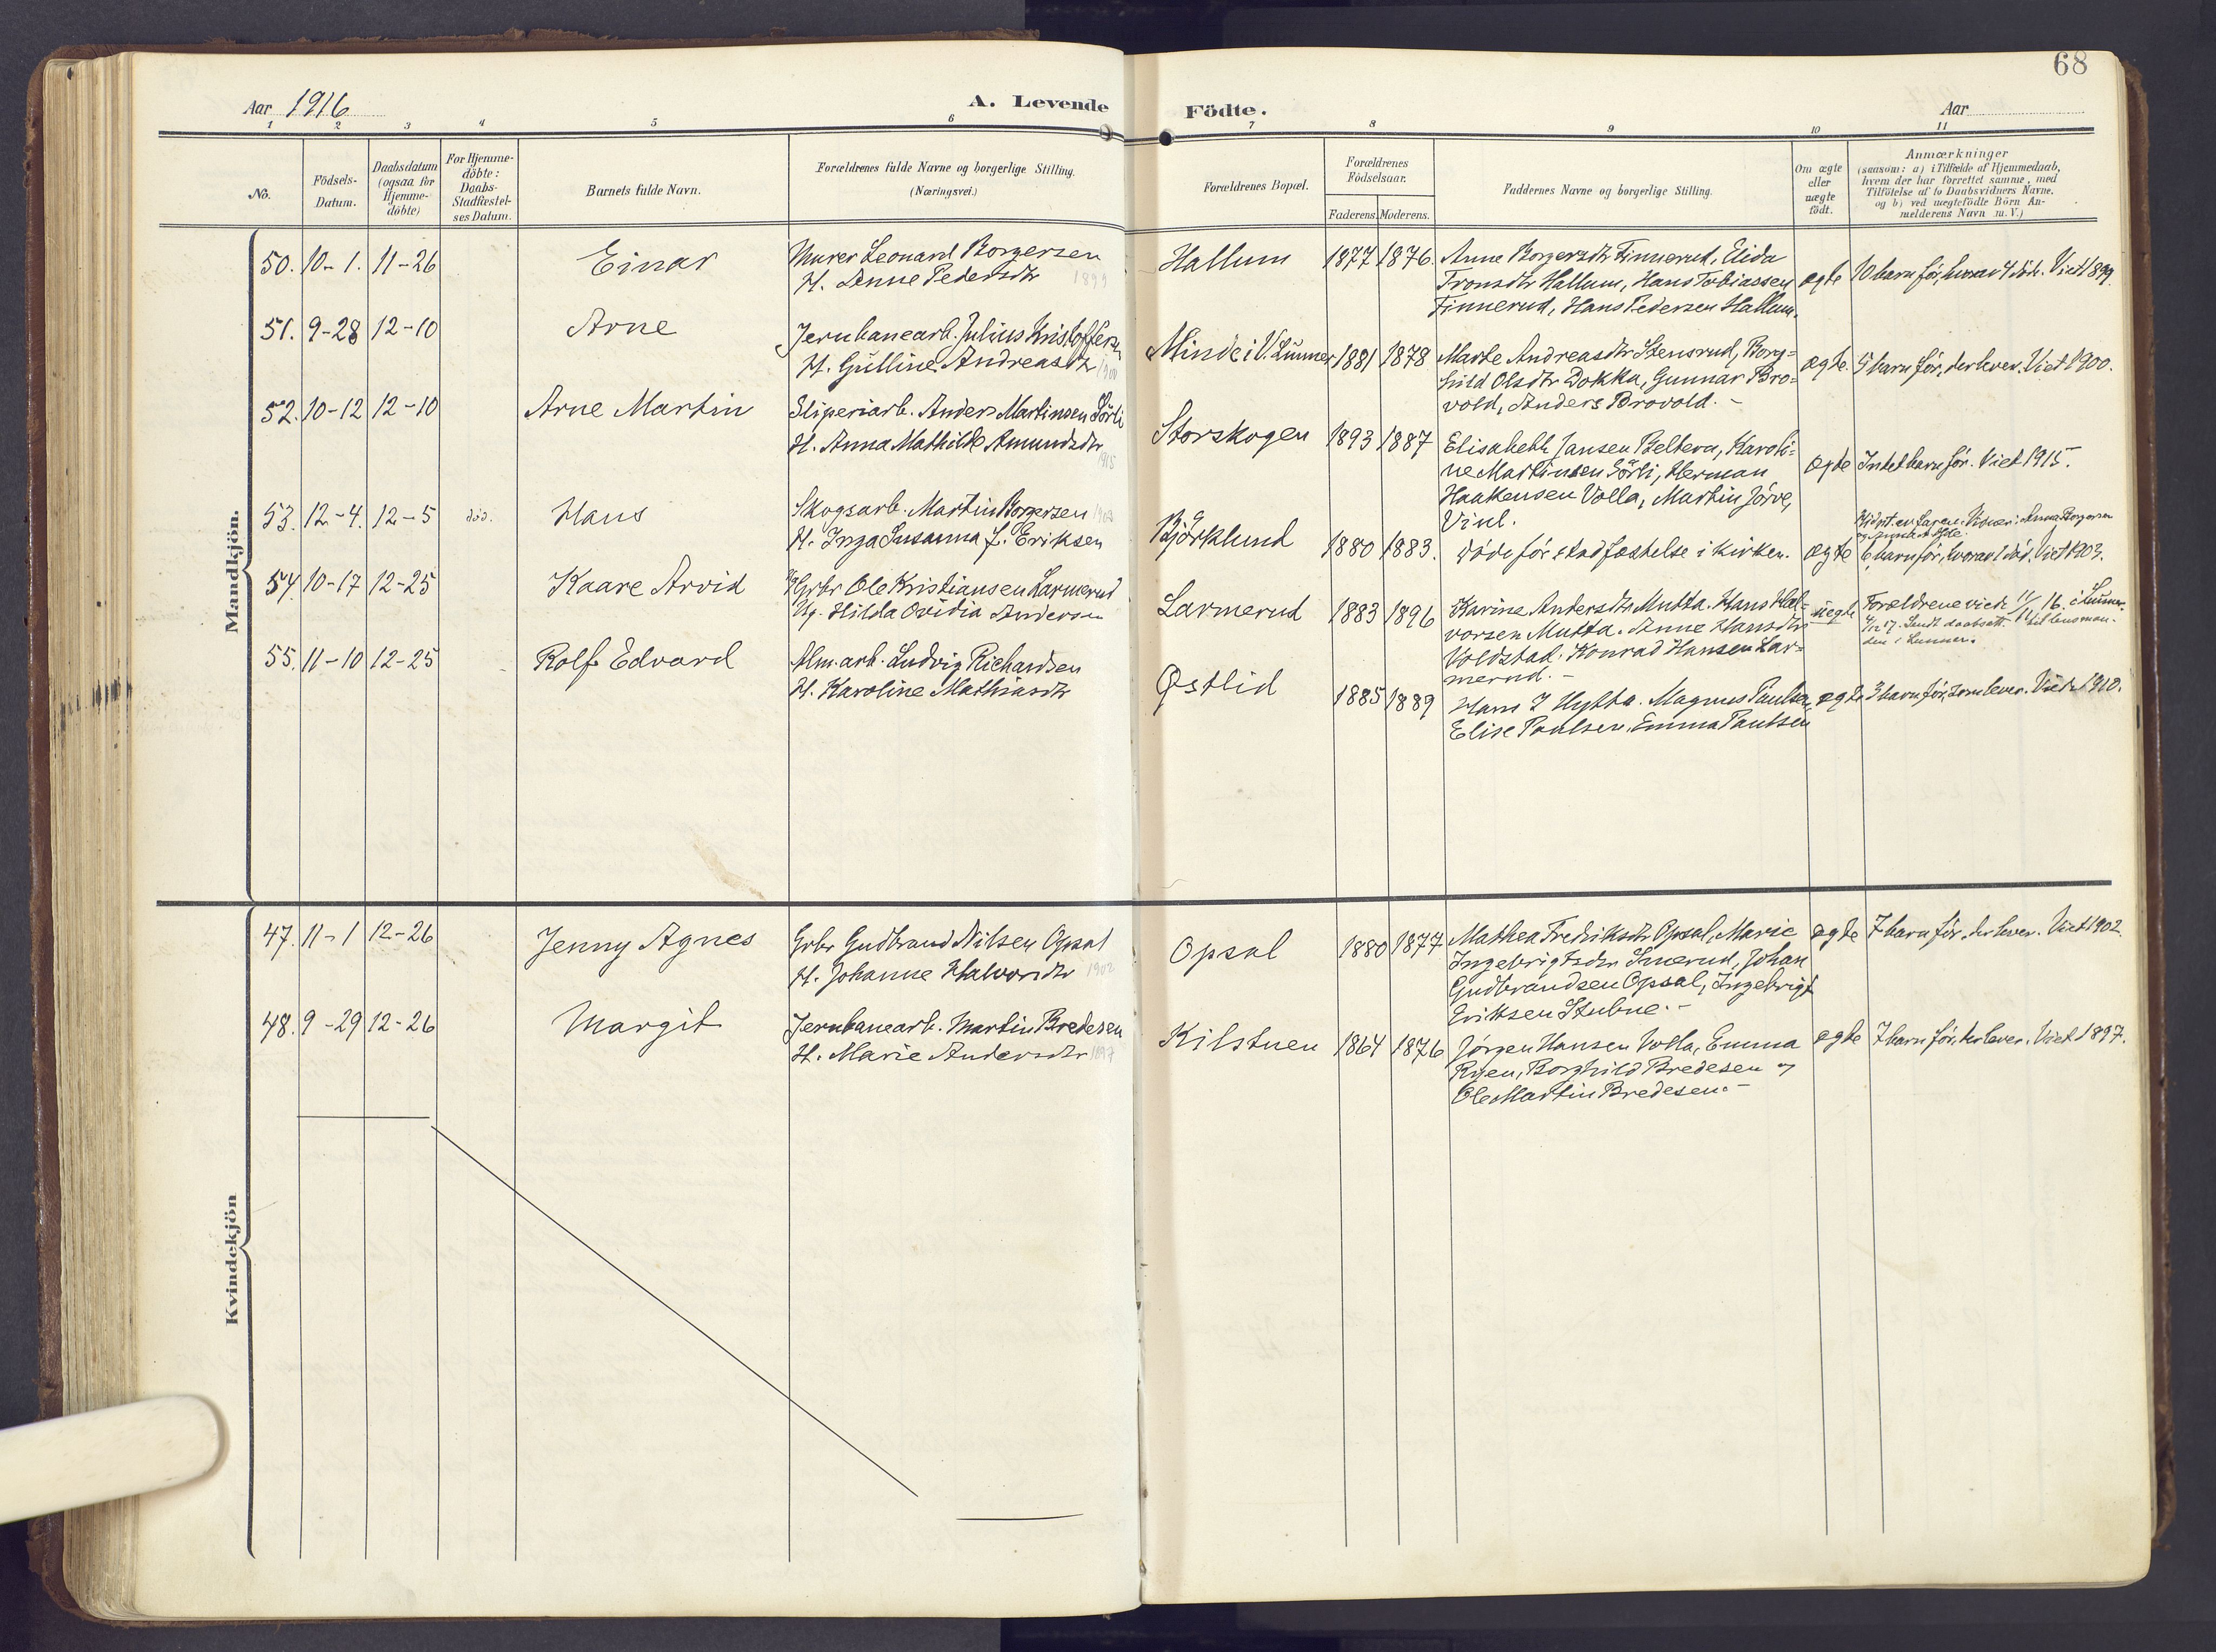 68
Aar 1916
A. Levende Födte.
Aar
1 2 3 4 5 6 7 8 9 10 11
No.
Födsels-
Datum.
Daabsdatum
(ogsaa for
Hjemme-
döbte)
For Hjemme-
döbte:
Daabs-
Stadfæstel-
ses Datum.
Barnets fulde Navn.
Forældrenes fulde Navne og borgerlige Stilling.
(Næringsvei.)
Forældrenes Bopæl.
Forældrenes
Födselsaar.
Faderens. Moderens.
Faddernes Navne og borgerlige Stilling.
Om ægte
eller
uægte
födt.
Anmærkninger
(saasom: a) i Tilfælde af Hjemmedaab,
hvem der har forrettet samme, med
Tilföielse af to Daabsvidners Navne,
og b) ved uægtefödte Börn An-
melderens Navn m. V.)
Mandkjön.
50. 10-1. 11-26 Einar
Murer Leonard Borgersen
H. Anne Pedersdtr 1899
Hallum 1877 1876.
Anne Borgersdtr Finnerud, Elida
Tronsdtr Hallum, Hans Tobiassen
Finnerud, Hans Pedersen Hallum.
ægte 10 barn för, hvorav 4 död. Viet 1899.
51. 9-28 12-10 Arne
Jernbanearb. Julius Kristoffersen
H. Gulline Andreasdtr 1900
Minde i V. Lunner 1881 1878
Marte Andreasdtr Stensrud, Borg-
hild Olsdtr Dokka, Gunnar Bro-
vold, Anders Brovold.-
ægte. 5 barn för, der lever. Viet 1900.
52. 10-12 12-10 Arne Martin
Sliperiarb. Anders Martinsen Sörli
H. Anna Mathilde Amundsdtr 1915
Storskogen 1893 1887
Elisabeth Jansen Beltera, Karoli-
ne Martinsen Sörli, Herman
Haakensen Volla, Martin Jörve,
Vinl.
ægte Intet barn för. Viet 1915.
53. 12-4. 12-5 död. Hans
Skogsarb. Martin Borgersen 1903
H. Inga Susanna f. Eriksen
Björklund 1880 1883.
Döde för stadfæstelse i kirken.
ægte
Hjdpt. av faren. Vidner: Anna Borgersen
6 barn för, hvorav 1 död. Viet 1903.
54. 10-17 12-25 Kaare Arvid
Grbr Ole Kristiansen Larmerud
Ug. Hilda Ovidia Andersen
Larmerud 1883 1896
Karine Andersdtr Mutta. Hans Hal-
vorsen Mutta. Anne Hansdtr
Voldstad. Konrad Hansen Lar-
merud.-
uegte Forældrene viede 11/11 16. i Lunner.
4/12 17. Sendt daabsatt. til lensman-
den i Lunner.
55. 11-10 12-25 Rolf Edvard
Alm. arb. Ludvig Richardsen
H. Karoline Mathiasdtr
Østlid 1885 1889
Hans J Hytta. Magnus Paulsen,
Elise Paulsen, Emma Paulsen
ægte 3 barn för, som lever. Viet 1910.
Kvindekjön
47. 11-1 12-26 Jenny Agnes
Grbr Gudbrand Nilsen Opsal
H. Johanne Halvorsdtr 1902
Opsal 1880 1877
Mathea Fredriksdtr Opsal, Marie
Ingebrigtsdtr Smerud, Johan
Gudbrandsen Opsal, Ingebrigt
Eriksen Stubne.-
ægte 7 barn för, der lever. Viet 1902.
48. 9-29 12-26 Margit
Jernbanearb. Martin Bredesen
H. Marie Andersdtr 1897
Kilstuen 1864 1876
Jörgen Hansen Volla, Emma
Ryen, Borghild Bredesen og
Ole Martin Bredesen.-
ægte 7 barn för, der lever. Viet 1897.